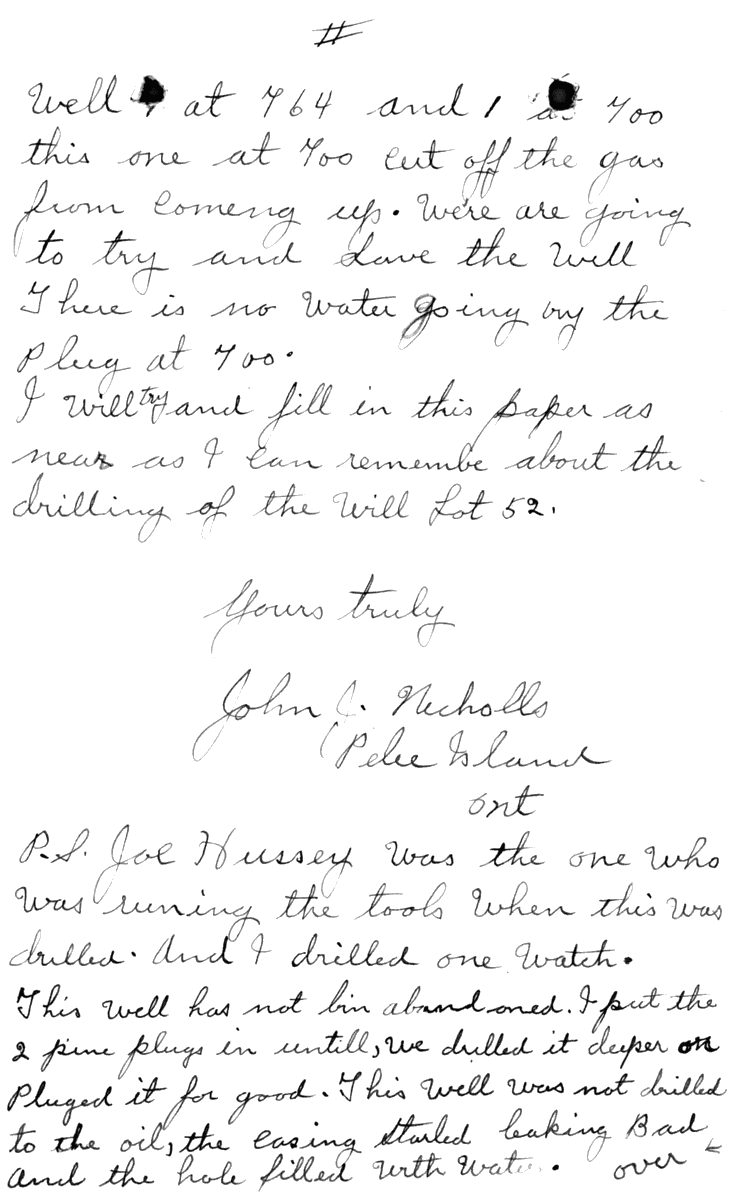 #
Well 1 at 764 and 1 at 700
this one at 700 cut off the gas
from comeng up. We're are going
to try and save the Well
There is no Water going by the
Plug at 700.
I Will try and fill in this paper as
near as I can remembe about the
drilling of the Will Lot 52.
Yours truly
John J. Nicholls
Pelee Island
ont
P.S. Joe Hussey was the one who
was runing the tools When this was
drilled. And I drilled one Watch.
This well has not bin abandoned. I put the
2 pine plugs in untill, we drilled it deeper or
Pluged it for good. This Well was not drilled
to the oil, the casing started leaking Bad
and the hole filled With Water.
over